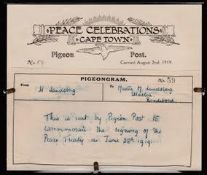 PEACE CELEBRATIONS
CAPE TOWN
Pigeon Post.
No. 59 Carried August 2nd 1919.
PIGEONGRAM.
No 59
From To
H Sandberg Master H Sandberg
This is sent by Pigeon Post to
commemorate the signing of the
Peace Treaty on June 28th 1919.